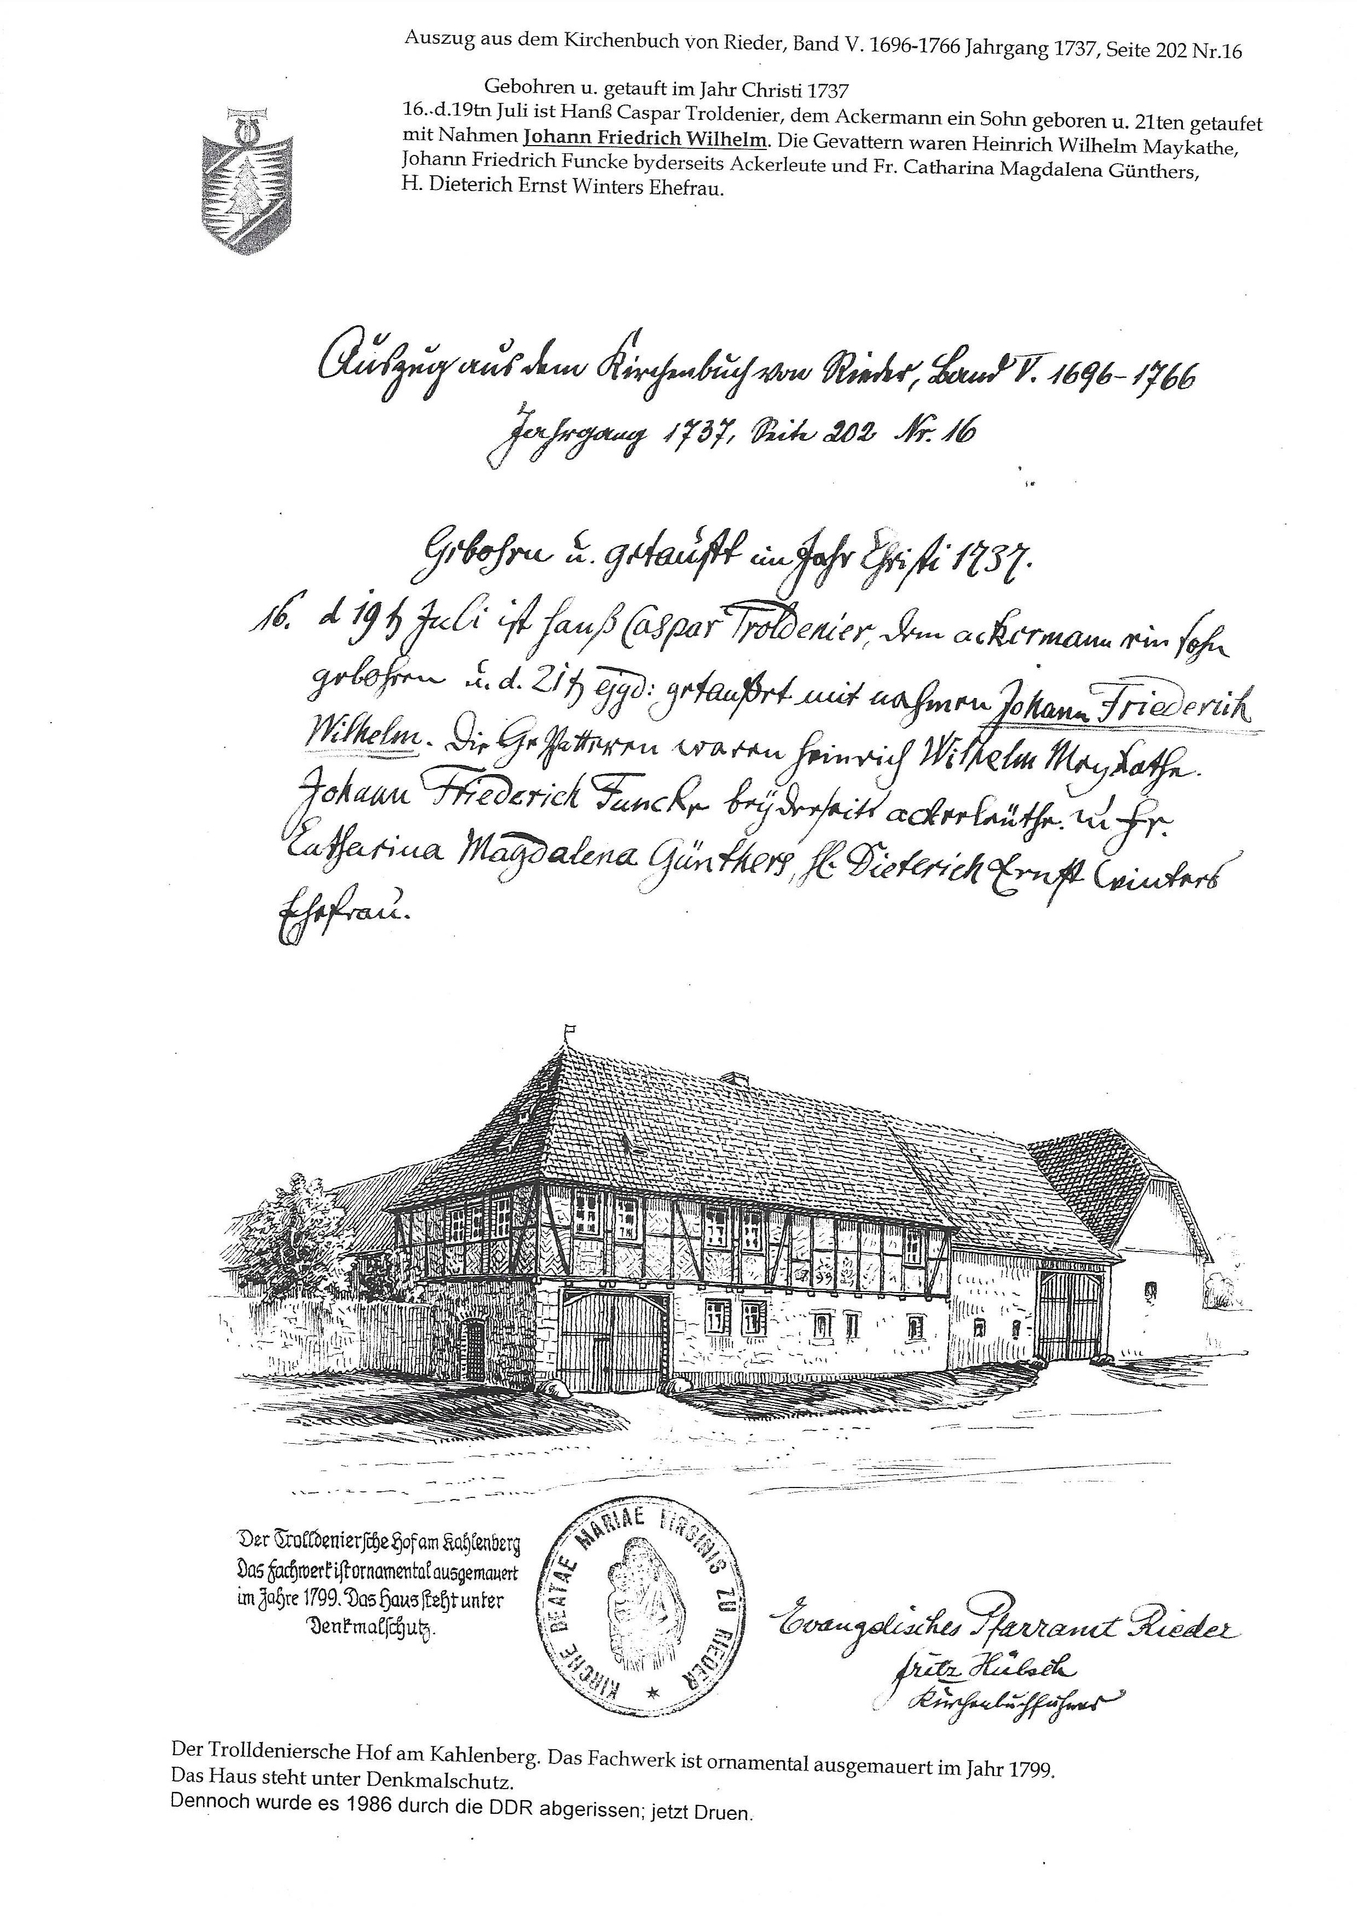 Auszug aus dem Kirchenbuch von Rieder, Band V. 1696-1766 Jahrgang 1737, Seite 202 Nr.16
Gebohren u. getauft im Jahr Christi 1737
16..d.19tn Juli ist Hanß Caspar Troldenier, dem Ackermann ein Sohn geboren u. 21ten getaufet
mit Nahmen Johann Friedrich Wilhelm. Die Gevattern waren Heinrich Wilhelm Maykathe,
Johann Friedrich Funcke byderseits Ackerleute und Fr. Catharina Magdalena Günthers,
H. Dieterich Ernst Winters Ehefrau.
T
Auszug aus dem Kirchenbuch von Rieder, Band V. 1696-1766
Jahrgang 1737, Seite 202 Nr. 16
Gebohrn u. getaufft im Jahr Christi 1737.
16. d 19t Juli ist Hanß Caspar Troldenier, dem ackermann ein sohn
gebohren u. d. 21t getauffet mit nahmen Johann Friederich
Wilhelm. Die Gevatteren waren Heinrich Wilhelm Meykathe.
Johann Friederich Funcke beÿderseits ackerleüthe. u Fr.
Catharina Magdalena Günthers, H. Dieterich Ernst Winters
Ehefrau.
1799
Der Trolldeniersche Hof am Kahlenberg
Das Fachwerk ist ornamental ausgemauert
im Jahre 1799. Das Haus steht unter
Denkmalschutz.
KIRCHE BEATAE MARIAE VIRGINIS ZU RIEDER
Evangelisches Pfarramt Rieder
Fritz Hübsch
Kirchenbuchführer
Der Trolldeniersche Hof am Kahlenberg. Das Fachwerk ist ornamental ausgemauert im Jahr 1799.
Das Haus steht unter Denkmalschutz.
Dennoch wurde es 1986 durch die DDR abgerissen; jetzt Druen.